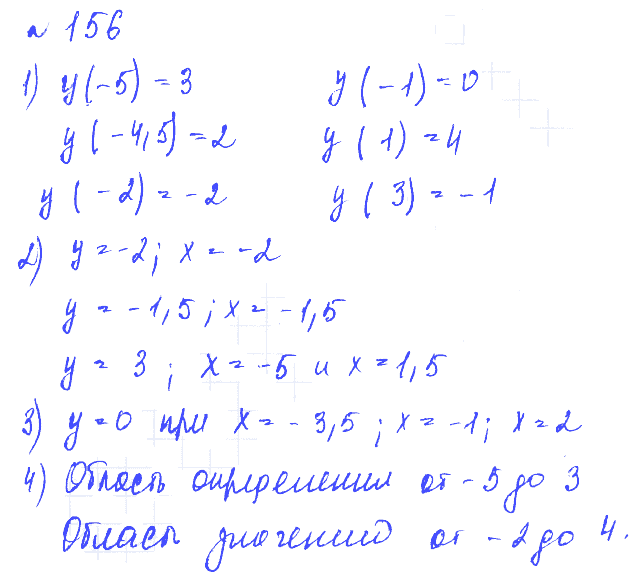 № 156
1) y(-5) = 3 y(-1) = 0
y(-4,5) = 2 y(1) = 4
y(-2) = -2 y(3) = -1
2) y = -2; x = -2
y = -1,5; x = -1,5
y = 3; x = -5 и x = 1,5
3) y = 0 при x = -3,5; x = -1; x = 2
4) Область определения от -5 до 3
Область значений от -2 до 4.